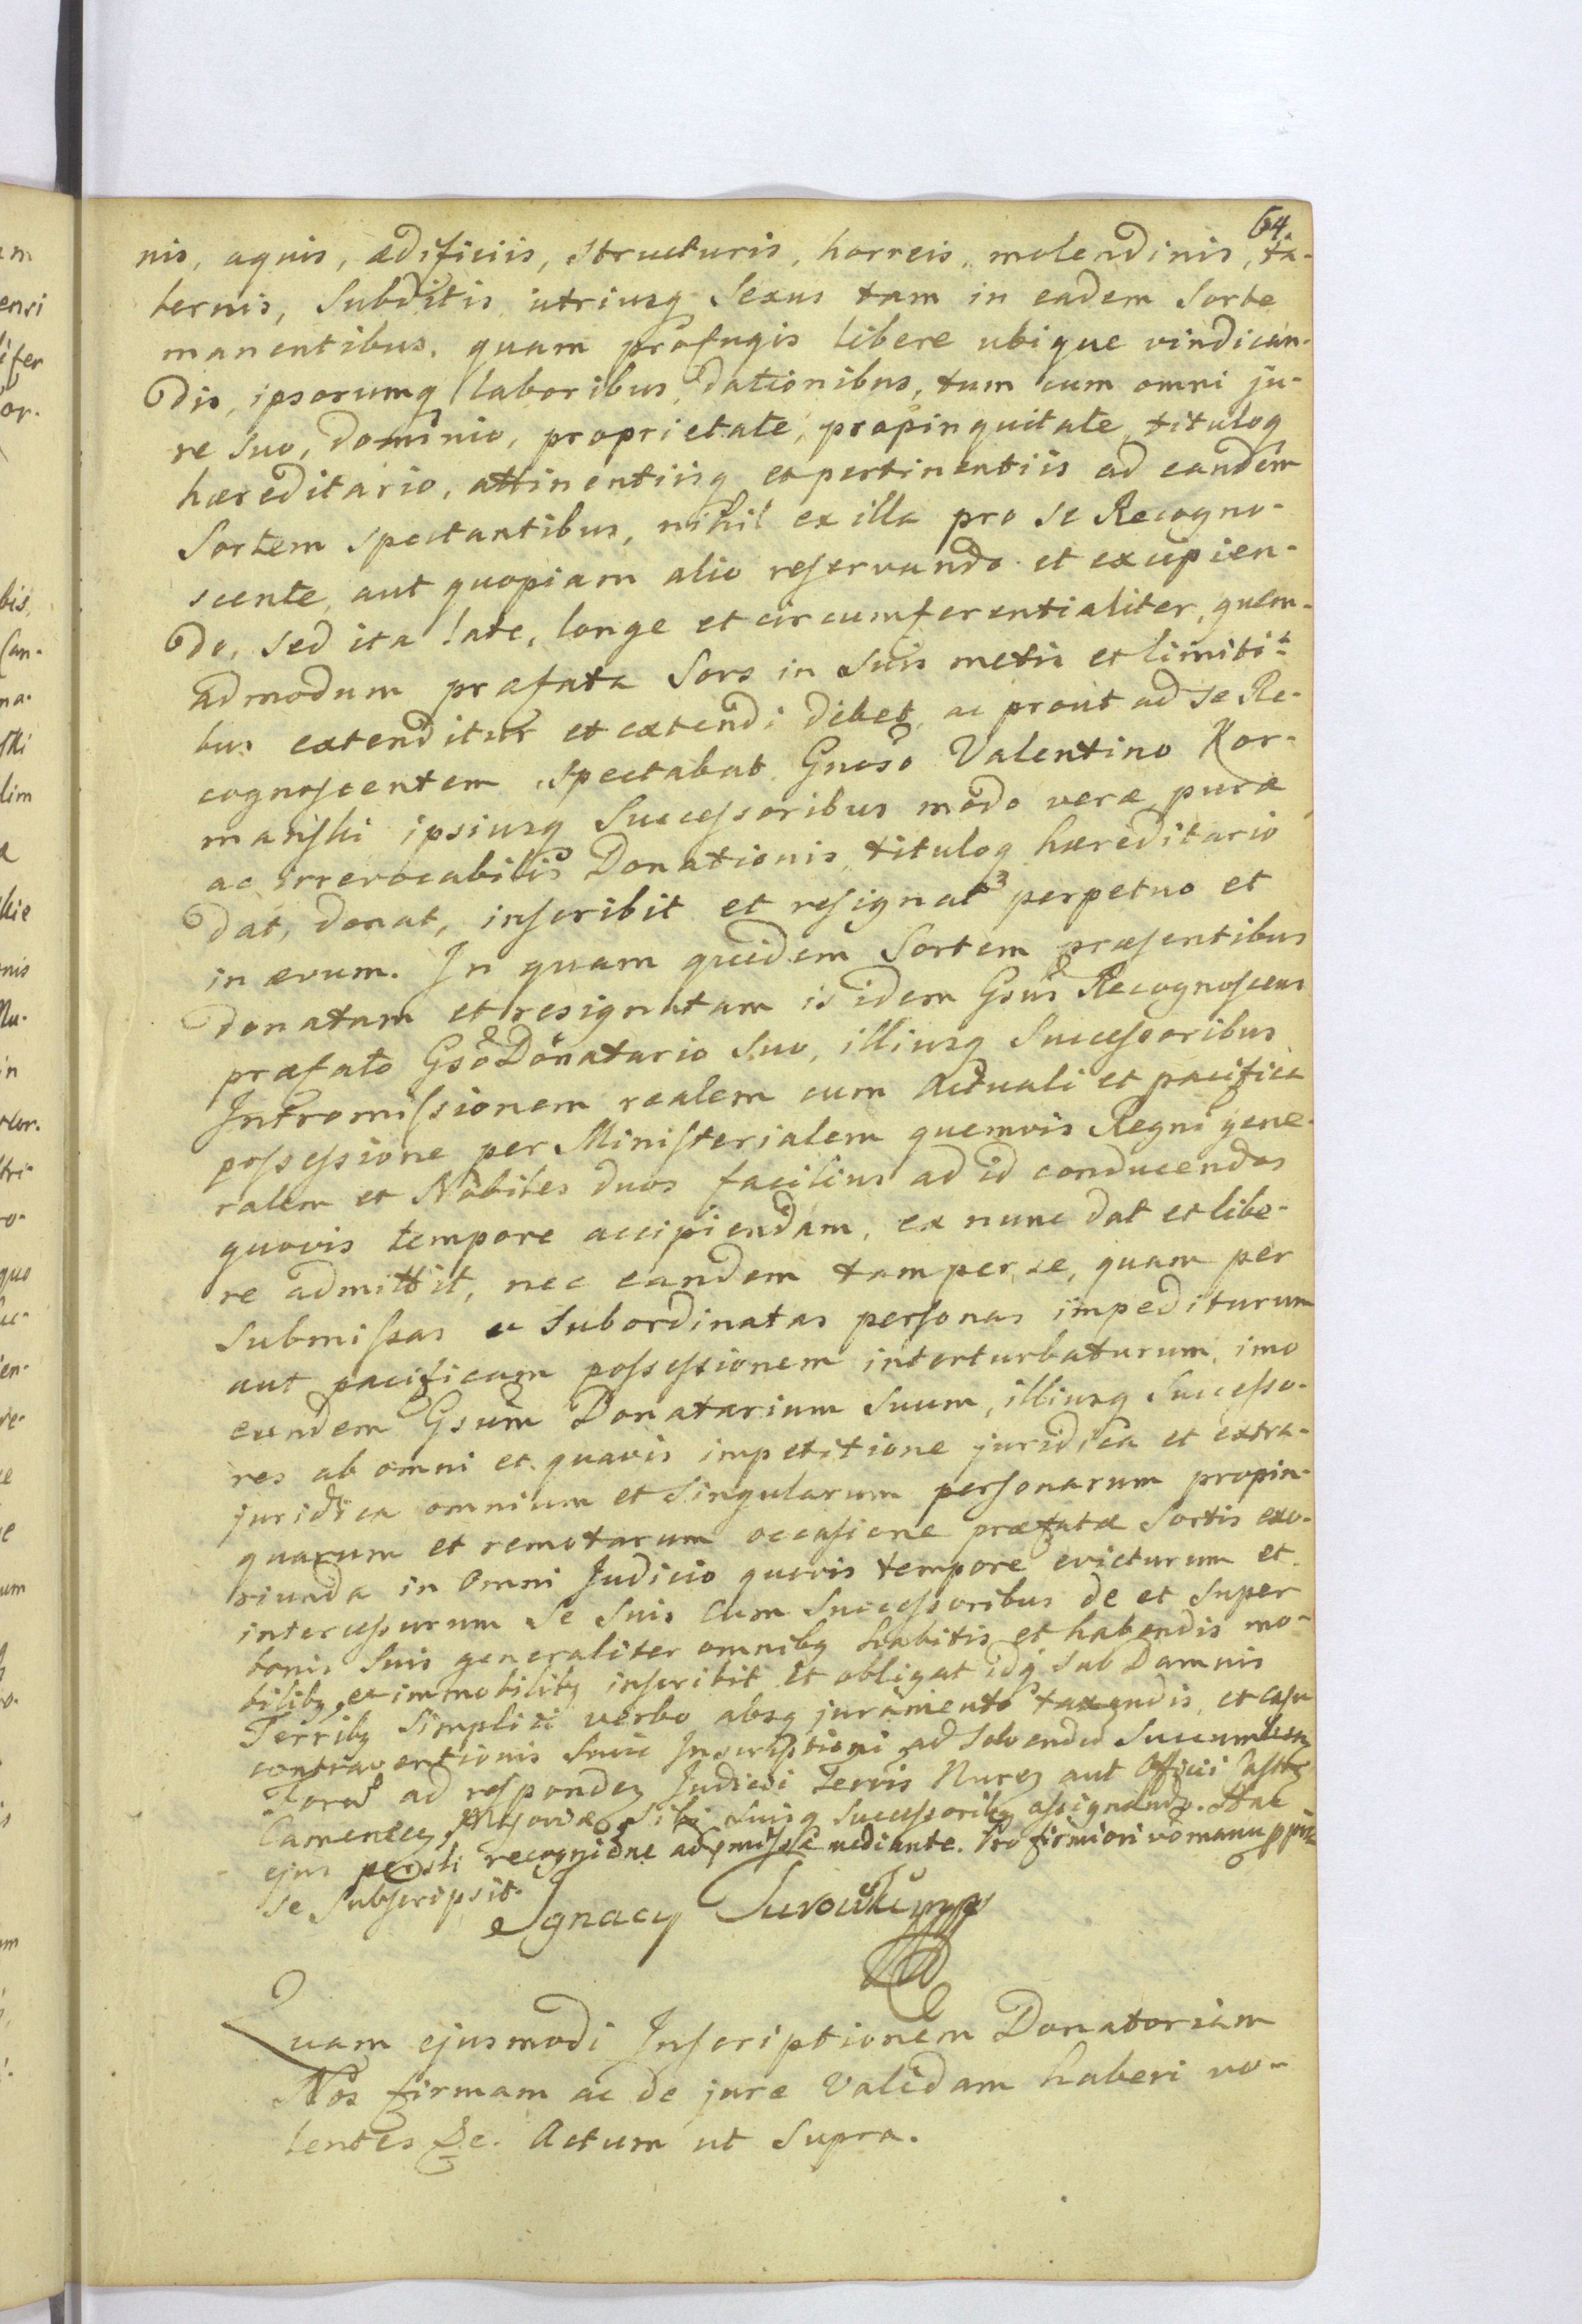 64.
nis, aquis, ædificiis, structuris, horreis, molendinis, ta-
bernis, Subditis utriusq Sexus tam in eadem Sorte
manentibus, quam profugis libere ubique vindican-
dis, ipsorumq laboribus, dationibus, tum cum omni ju-
re suo, dominio, proprietate, propinquitate, tituloq
hæreditario, attinentiisq et pertinentiis ad eandem
Sortem spectantibus, nihil ex illa pro se Recogno-
scente, aut quopiam alio reservando et excipien-
do, sed ita late, longe et circumferentialiter, quem-
admodum præfata Sors in Suis metis et limiti-
bus extenditur et extendi debet, ac prout ad se Re-
cognoscentem spectabat Gnoso Valentino Kor-
mański ipsiusq Successoribus modo veræ puræ
ac irrevocabilis Donationis, tituloq hæreditario
dat, donat, inscribit et resignat perpetuo et
in ævum. In quam quidem Sortem præsentibus
donatam et resignatam is idem Gsus Recognoscens
præfato Gso Donatario Suo, illiusq Successoribus
Intromissionem realem cum Actuali et pacifica
possessione per Ministerialem quemvis Regni gene-
ralem et Nobiles duos facilius ad id conducendos
quovis tempore accipiendam, ex nunc dat et libe-
re admittit, nec eandem tam per se, quam per
Submissas et Subordinatas personas impediturum
aut pacificam possessionem interturbaturum, imo
eundem Gsum Donatarium Suum, illiusq Successo-
res ab omni et quavis impetitione juridica et extra-
juridica omnium et Singularum personarum propin-
quarum et remotarum occasione præfatæ Sortis exo-
riunda in Omni Judicio quovis tempore evicturum et
intercessurum Se Suis Cum Successoribus de et Super
bonis Suis generaliter omnibq habitis et habendis mo-
bilibq et immobilibq inscribit et obligat idq Sub Damnis
Terribq Simplici verbo absq juramento taxandis, et casu
contraventionis Suic Inscriptioni ad Solvendu Succumben
Foro ad responden Judicii Terris Nuren aut Officii Castren
Camenecen, Masoviæ, Sibi Suisq Successoribq assignando. Hac
ejus personli recognione ad præmissa mediante. Pro firmiori vo manu ppria
se Subscripsit.
Ignacy
Quam ejusmodi Inscriptionem Donatoriam
Nos firmam ac de jure Validam haberi vo-
lentes &c. Actum ut Supra.